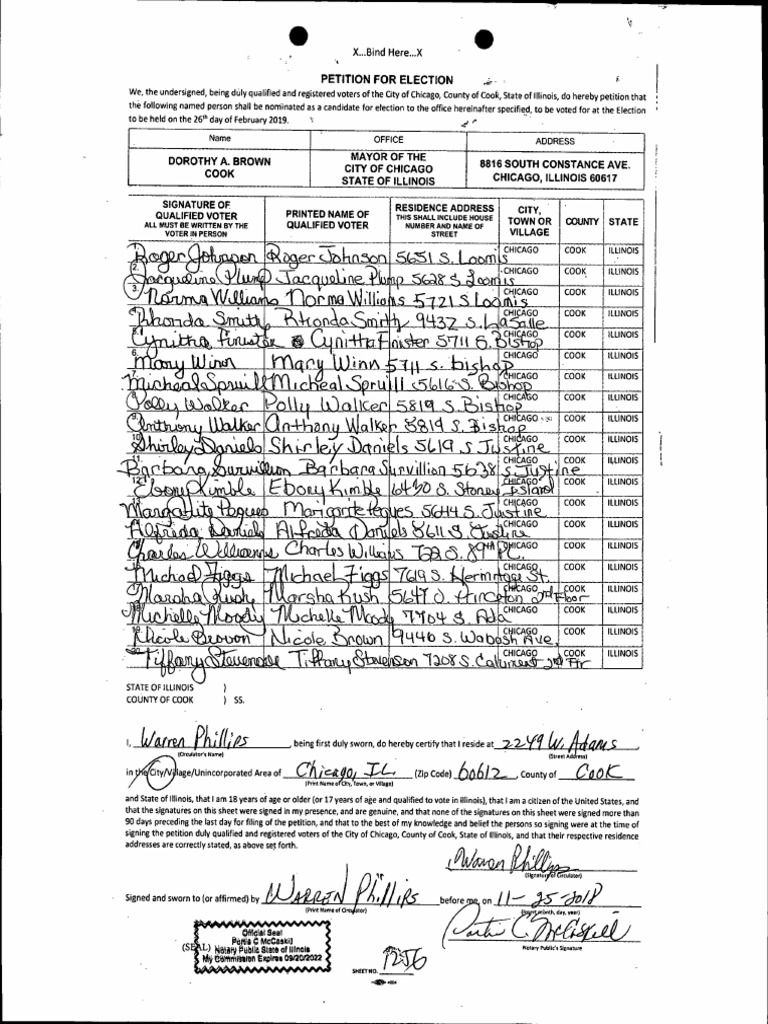 X...Bind Here...X
PETITION FOR ELECTION
We, the undersigned, being duly qualified and registered voters of the City of Chicago, County of Cook, State of Illinois, do hereby petition that
the following named person shall be nominated as a candidate for election to the office hereinafter specified, to be voted for at the Election
to be held on the 26th day of February 2019.
Name OFFICE ADDRESS
DOROTHY A. BROWN COOK MAYOR OF THE CITY OF CHICAGO STATE OF ILLINOIS 8816 SOUTH CONSTANCE AVE. CHICAGO, ILLINOIS 60617
SIGNATURE OF QUALIFIED VOTER ALL MUST BE WRITTEN BY THE VOTER IN PERSON PRINTED NAME OF QUALIFIED VOTER RESIDENCE ADDRESS THIS SHALL INCLUDE HOUSE NUMBER AND NAME OF STREET CITY, TOWN OR VILLAGE COUNTY STATE
1. Roger Johnson Roger Johnson 5651 S. Loomis CHICAGO COOK ILLINOIS
2. Jacqueline Plump Jacqueline Plump 5628 S. Loomis CHICAGO COOK ILLINOIS
3. Norma Williams Norma Williams 5721 S Loomis CHICAGO COOK ILLINOIS
Rhonda Smith Rhonda Smith 9432 S. LaSalle CHICAGO COOK ILLINOIS
5. Cynitha Finister Cynitha Finister 5711 S. Bishop CHICAGO COOK ILLINOIS
6. Mary Winn Mary Winn 5711 S. bishop CHICAGO COOK ILLINOIS
7. Micheal Spruill Micheal Spruill 5616 S. Bishop CHICAGO COOK ILLINOIS
8. Polly Walker Polly Walker 5819 S. Bishop CHICAGO COOK ILLINOIS
9. Anthony Walker Anthony Walker 5819 S. Bishop CHICAGO COOK ILLINOIS
10. Shirley Daniels Shirley Daniels 5619 S. Justine CHICAGO COOK ILLINOIS
11. Barbara Survillion Barbara Survillion 5638 S. Justine CHICAGO COOK ILLINOIS
12. Ebony Kimble Ebony Kimble 6430 S. Stoney Island CHICAGO COOK ILLINOIS
13. Margarite Pegues Marigarite Pegues 5644 S. Justine CHICAGO COOK ILLINOIS
Alfreda Daniels Alfreda Daniels S. Justine CHICAGO COOK ILLINOIS
Charles Williams Charles Williams S. 89th PL. CHICAGO COOK ILLINOIS
Michael Figgs Michael Figgs 7619 S. Hermitage St. CHICAGO COOK ILLINOIS
Marsha Kush Marsha Kush 5647 Princeton 2nd Floor CHICAGO COOK ILLINOIS
18. Michelle Moody Michelle Moody 7704 S. Ada CHICAGO COOK ILLINOIS
19. Nicole Brown Nicole Brown 9446 S. Wabash Ave. CHICAGO COOK ILLINOIS
20. Tiffany Stevenson Tiffany Stevenson 7208 S. Calumet 2nd Flr CHICAGO COOK ILLINOIS
STATE OF ILLINOIS )
COUNTY OF COOK ) SS.
I, Warren Phillips, being first duly sworn, do hereby certify that I reside at 2249 W. Adams
(Circulator's Name) (Street Address)
in the City/Village/Unincorporated Area of Chicago, IL (Zip Code) 60612 County of Cook
(Print Name of City, Town, or Village)
and State of Illinois, that I am 18 years of age or older (or 17 years of age and qualified to vote in Illinois), that I am a citizen of the United States, and
that the signatures on this sheet were signed in my presence, and are genuine, and that none of the signatures on this sheet were signed more than
90 days preceding the last day for filing of the petition, and that to the best of my knowledge and belief the persons so signing were at the time of
signing the petition duly qualified and registered voters of the City of Chicago, County of Cook, State of Illinois, and that their respective residence
addresses are correctly stated, as above set forth.
Warren Phillips
(Signature of Circulator)
Signed and sworn to (or affirmed) by WARREN Phillips before me, on 11-25-2018
(Print Name of Circulator) (Insert month, day, year)
Portia C. McCaskill
Notary Public's Signature
(SEAL)
Official Seal
Portia C McCaskill
Notary Public State of Illinois
My Commission Expires 09/20/2022
SHEET NO. 1256